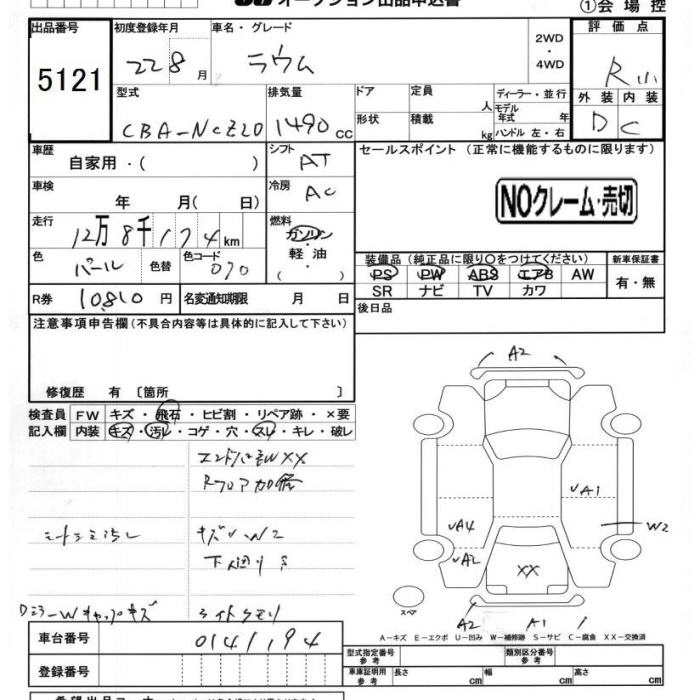 オークション出品申込書
①会場控
出品番号 初度登録年月 車名・グレード 評価点
5121 22 8 月 ラウム 2WD ・ 4WD R小
型式 排気量 ドア 定員 人 ディーラー・並行 外装 内装
CBA-NCZ20 1490 cc 形状 積載 kg モデル年式 年 ハンドル 左・右 D C
車歴 シフト セールスポイント (正常に機能するものに限ります)
自家用・( ) AT
車検 冷房 NOクレーム・売切
年 月( 日) AC
走行 燃料
12万8千174km ガソリン
色 色替 色コード 軽油 装備品(純正品に限り○をつけてください) 新車保証書
パール 070 ・( ) PS PW ABS エアB AW 有・無
R券 10,810 円 名変通知期限 月 日 SR ナビ TV カワ
注意事項申告欄(不具合内容等は具体的に記入して下さい) 後日品
修復歴 有 〔箇所 〕
検査員 FW キズ・飛石・ヒビ割・リペア跡・×要
記入欄 内装 キズ・汚レ・コゲ・穴・スレ・キレ・破レ
エンドパネWXX
Rフロア加修
キズ、W2
下廻りS
DミラーWキャップキズ ライトクモリ
A2
A1
A4 W2
A2
XX
スペア
A2 A1
A-キズ E-エクボ U-凹み W-補修跡 S-サビ C-腐食 XX-交換済
車台番号 0141194
登録番号
型式指定番号 参考 類別区分番号 参考
車庫証明用 参考 長さ cm 幅 cm 高さ cm
希望出品コーナー